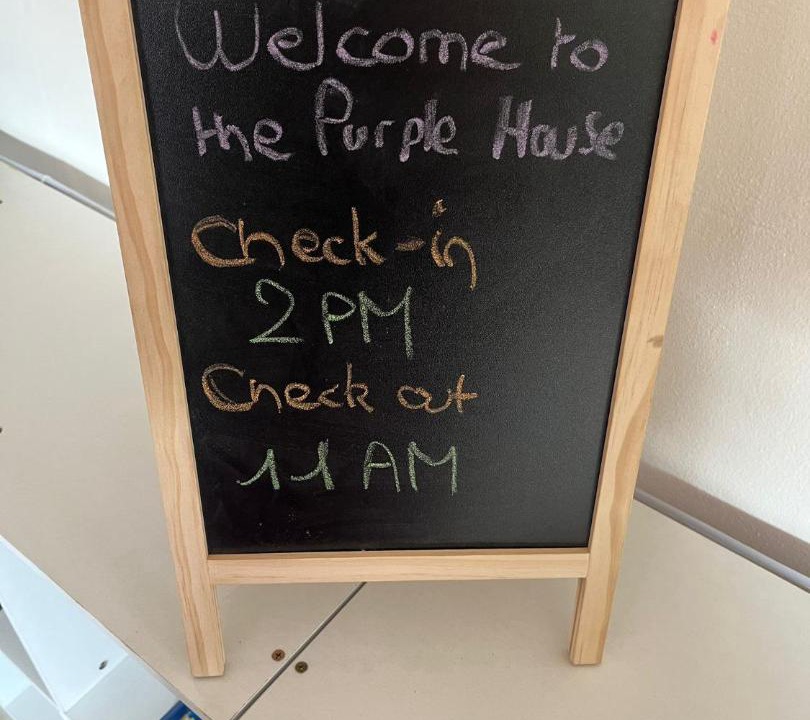 Welcome to
the Purple House
Check-in
2 PM
Check out
11 AM